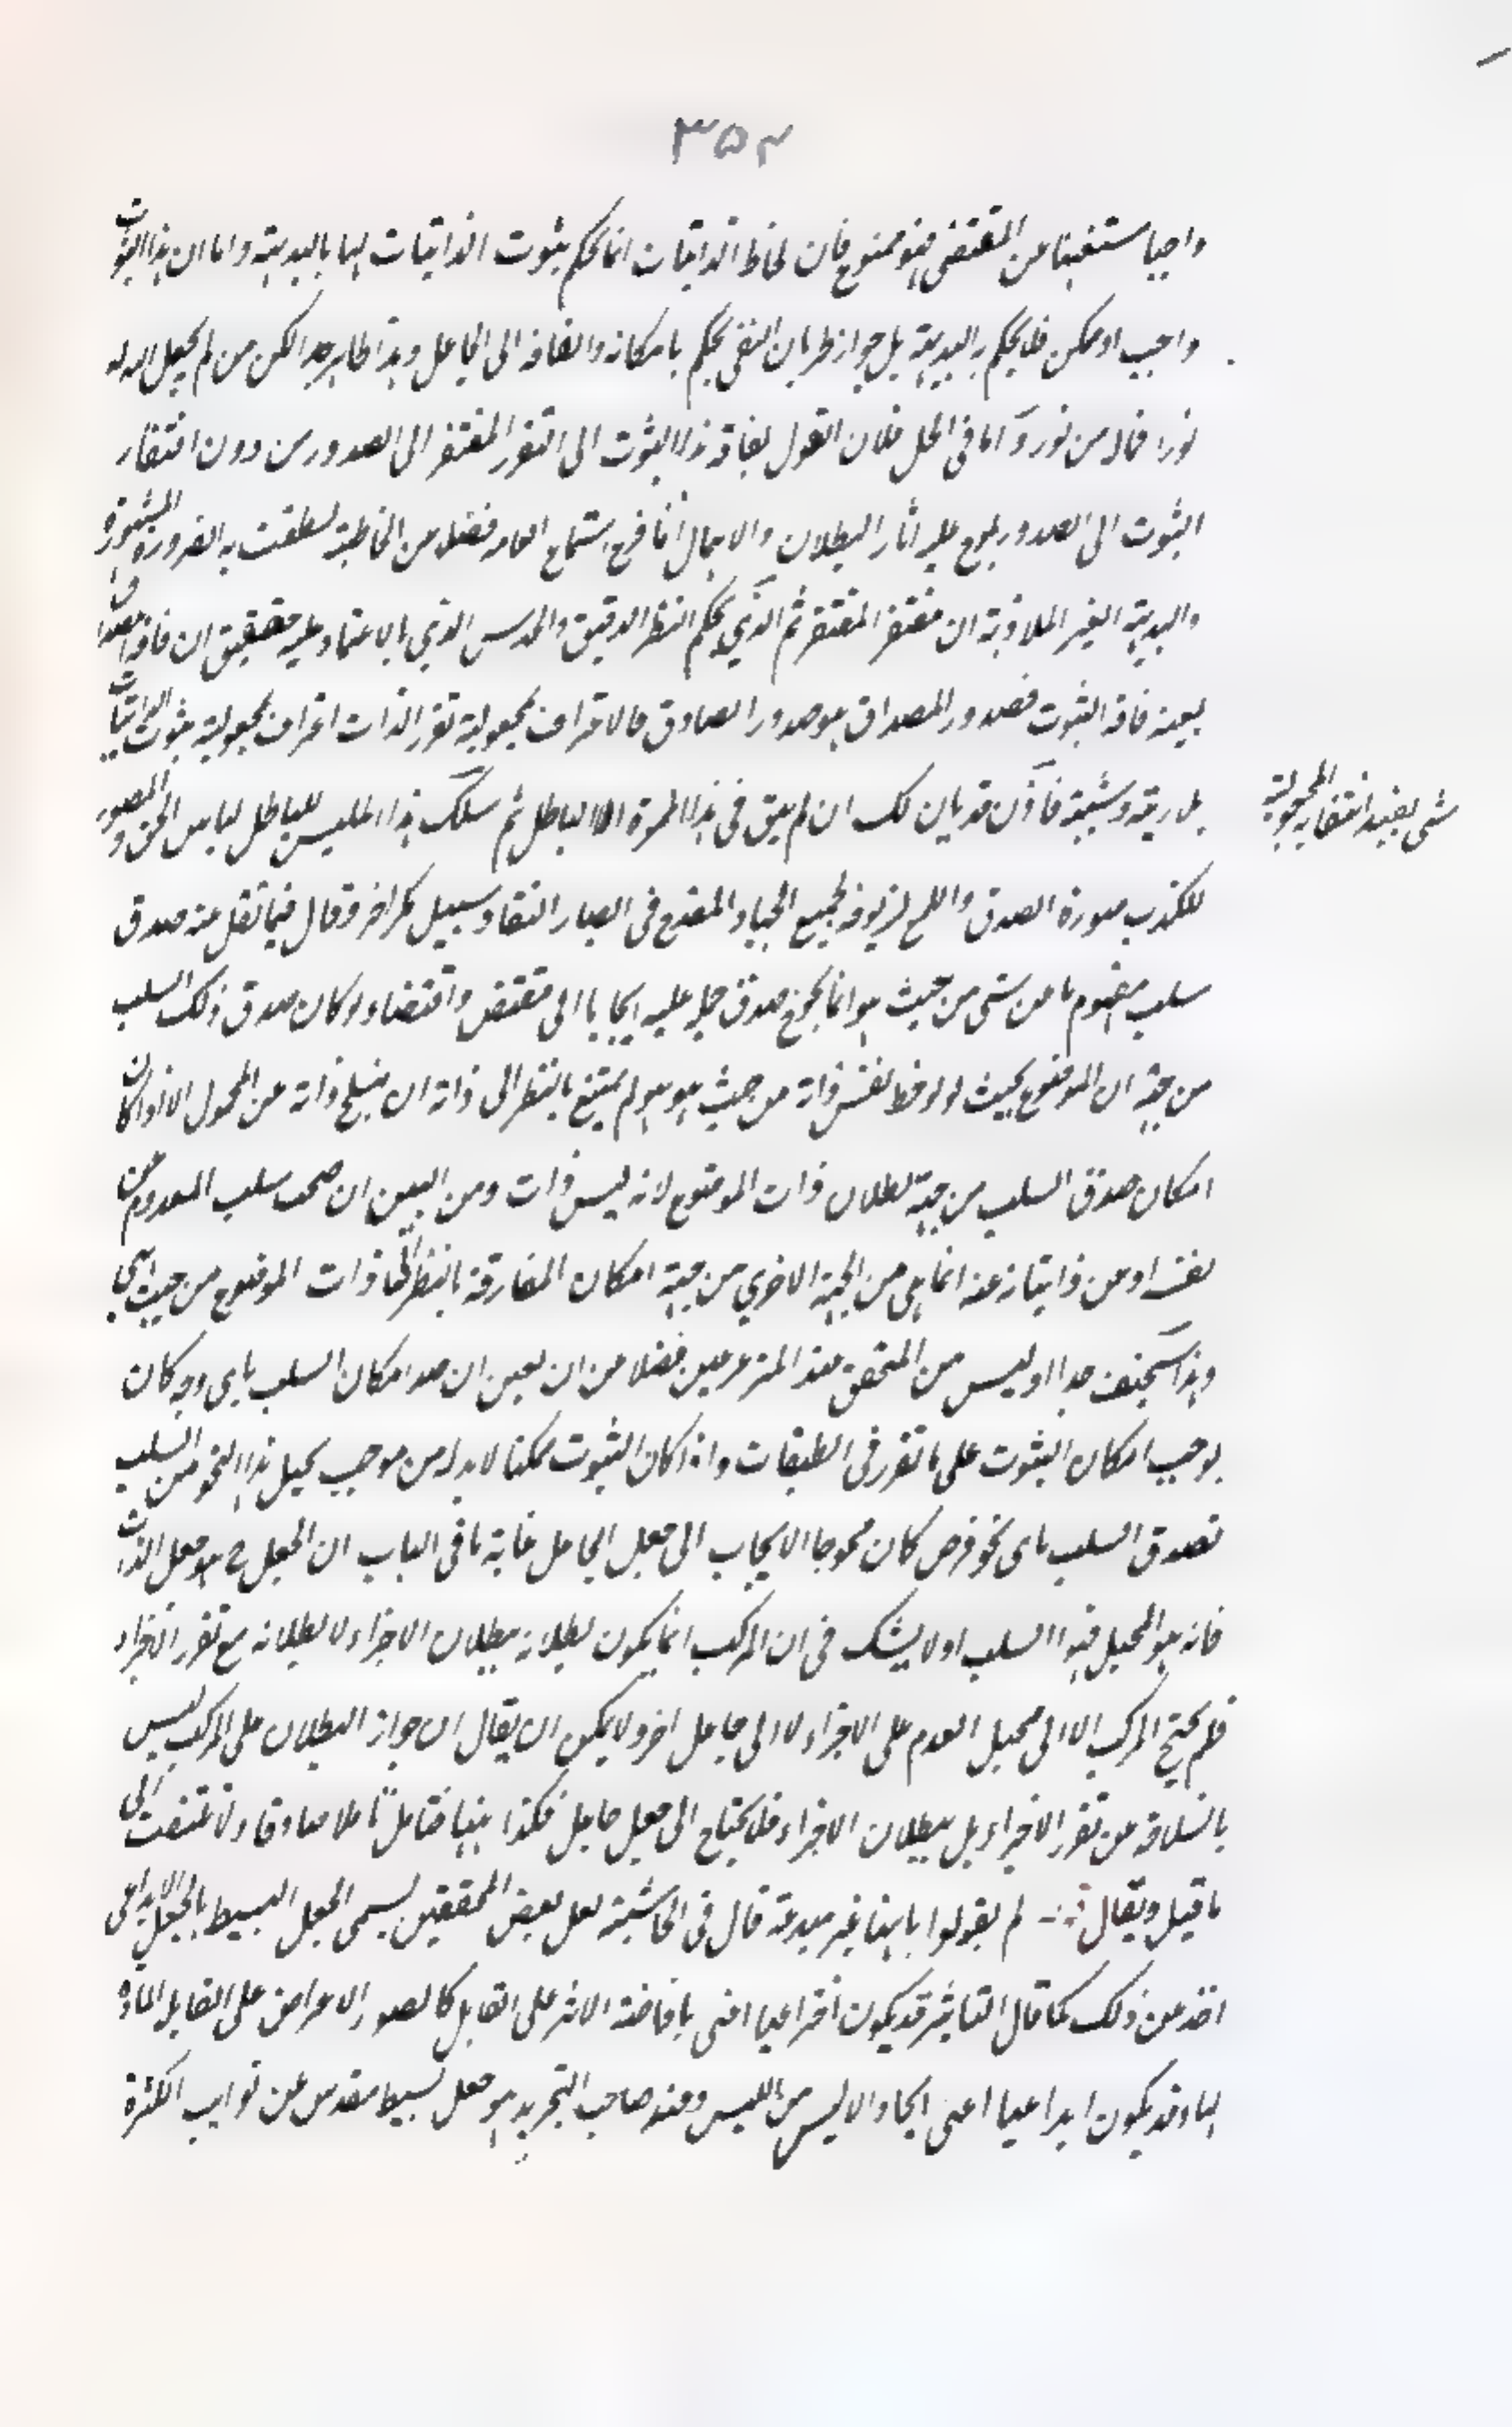 ٣٥٢
واجبا مستغنيا من المقتضى فهو ممنوع فان لحاظ الذاتيات انما يحكم بثبوت الذاتيات لها بالبديهة واما ان هذا الثبوت
واجب او ممكن فلا يحكم به البديهة بل جواز طريان النفي يحكم بامكانه والفاقة الى الجاعل وهذا ظاهر جدا لكن من لم يجعل الله له
نورا فماله من نور واما في الحل فلان القول بفاقة هذا الثبوت الى التقرر المفتقر الى الصدور من دون افتقار
الثبوت الى الصدور يلوح عليه اثار البطلان والاهمال انما قرع استماع العامة فضلا من الخاطبة نطقت به الضرورة المشهورة
والبديهة الغير الملاوفة ان مفتقر المفتقر ثم الذي يحكم النظر الدقيق والحدس الذي بالاعتماد عليه حقيق ان فاقة المصداق
بعينه فاقة الثبوت فصدور المصداق هو صدور الصادق فالاعتراف بمجعولية تقرر الذات اعتراف بمجعولية ثبوت الذاتيات
بلا ريبة وشبهة فاذن قد بان لك ان لم يبق في هذا المرة الا الباطل ثم سلك هذا الملبس للباطل لباس الحق والمصور
شى يفيد افتقاره المجعولية
للكذب صورة الصدق سبيل مكر اخر وقال فيما نقل منه صدق
سلب مفهوم ما من شى من حيث هو انما يحوج صدق حمله عليه ايجابا الى مقتض واقتضاء لو كان صدق ذلك السلب
من جهة ان الموضوع بحيث لو لوحظ نفس ذاته من حيث هو هو لم يمتنع بالنظر الى ذاته ان ينسلخ ذاته عن المحمول لا اذا كان
امكان صدق السلب من جهة بطلان ذات الموضوع لانه ليس ذات ومن البين ان صحة سلب المعدوم عن
نفسه او من ذاتياته عنه انما هي من الجهة الاخرى من جهة امكان المفارقة بالنظر الى ذات الموضوع من حيث هي
وهذا سخيف جدا اوليس من المتحقق عند المتزعرعين فضلا من ان يعين ان صدامكان السلب باى وجه كان
يوجب امكان الثبوت على ما تقرر في الطبقات واذا كان الثبوت ممكنا لا بد له من موجب يحيل هذا النحو من السلب
فصدق السلب باى نحو فرض كان محوجا الايجاب الى جعل الجاعل غاية ما في الباب ان الجعل ح هو جعل الذات
فانه هو المحيل فيه السلب اولا يشك في ان المركب انما يكون بطلانه ببطلان الاجزاء لا بطلانه مع تقرر الاجزاء
فلم يحتج المركب الا الى محيل العدم على الاجزاء لا الى جاعل اخر ولا يمكن ان يقال ان جواز البطلان على المركب ليس
بانسلاخه عن تقرر الاجزاء بل ببطلان الاجزاء فلا يحتاج الى جعل جاعل فكذا ههنا فتامل تاملا صادقا ولا تلتفت الى
ما قيل ويقال قوله لم يقولوا بانها غير مبدعة قال في الحاشية لعل بعض المحققين يسمى الجعل البسيط بالجعل الابداعى
اخذ من ذلك كما قال التاثير قد يكون اختراعيا اعنى بافاضة الاثر على القابل كالصور والاعراض على القابل المادة
لها وقد يكون ابداعيا اعنى ايجاد الايس من الليس وعند صاحب التجريد هو جعل بسيط مقدس عن شوايب الكثرة